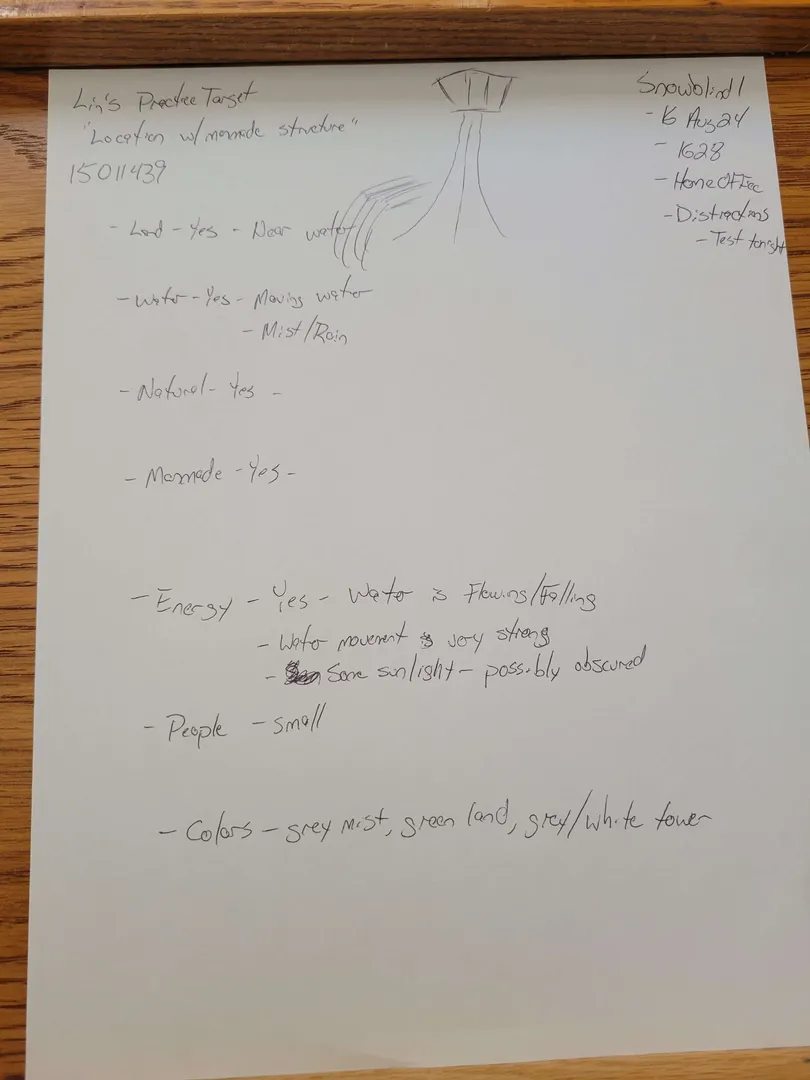 Lin's Practice Target
"Location w/ manmade structure"
15011439
Snowblind1
- 16 Aug 24
- 1628
- Home Office
- Distractions
- Test tonight
- Land - Yes - Near water
- Water - Yes - Moving water
- Mist/Rain
- Natural - Yes -
- Manmade - Yes -
- Energy - Yes - Water is Flowing/Falling
- Water movement is very strong
- Some sunlight - possibly obscured
- People - small
- Colors - grey mist, green land, grey/white tower